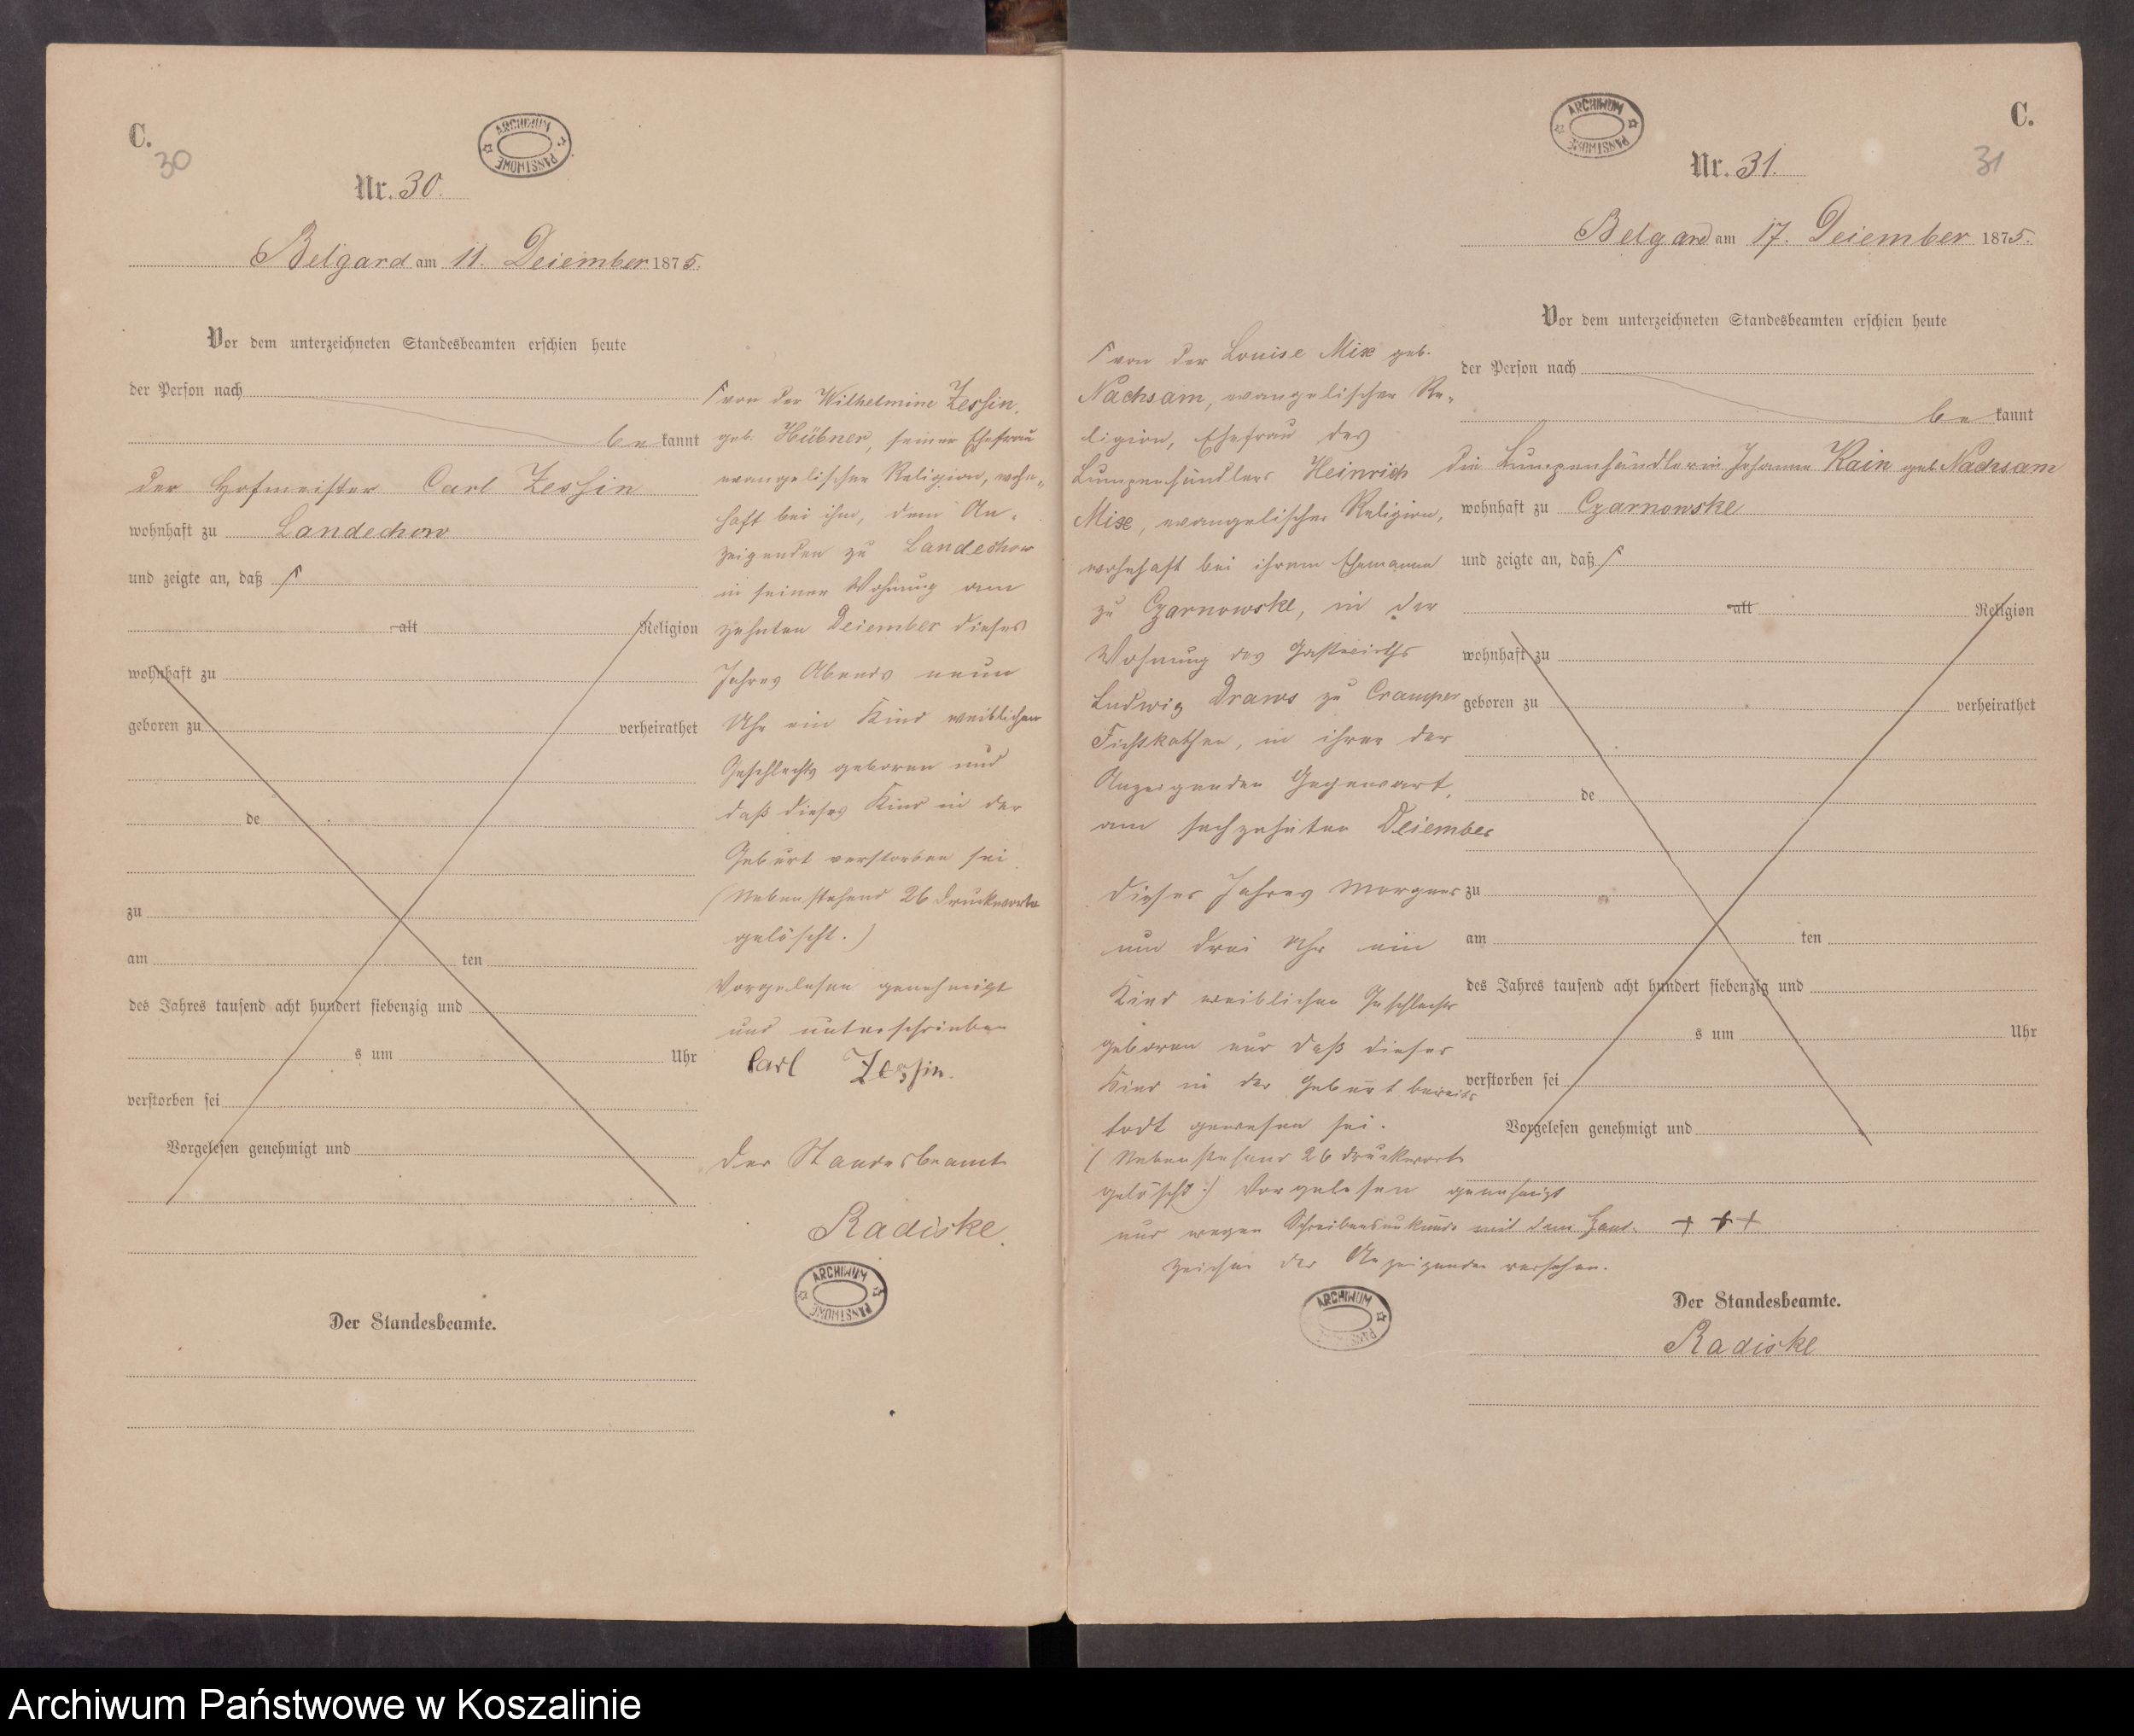 C.
30
ARCHIWUM PAŃSTWOWE
Nr. 30.
Belgard am 11. Deiember 1875.
Vor dem unterzeichneten Standesbeamten erschien heute
der Person nach
be kannt
der Hofmeister Carl Zessin
wohnhaft zu Landechow
und zeigte an, daß ┌
alt Religion
wohnhaft zu
geboren zu verheirathet
de
zu
am ten
des Jahres tausend acht hundert siebenzig und
s um Uhr
verstorben sei
Vorgelesen genehmigt und
Der Standesbeamte.
┌ von der Wilhelmine Zessin,
geb. Hübner, seiner Ehefrau
evangelischer Religion, wohn-
haft bei ihm, dem An-
zeigenden zu Landechow
in seiner Wohnung am
zehnten Deiember dieses
Jahres Abends neun
Uhr ein Kind weiblichen
Geschlechts geboren und
daß dieses Kind in der
Geburt verstorben sei
(Nebenstehend 26 Druckworte
gelöscht.)
Vorgelesen genehmigt
und unterschrieben
Carl Zessin.
Der Standesbeamte
Radiske.
ARCHIWUM PAŃSTWOWE
ARCHIWUM PAŃSTWOWE
C.
31
Nr. 31.
Belgard am 17. Deiember 1875.
Vor dem unterzeichneten Standesbeamten erschien heute
der Person nach
be kannt
die Lumpenhändlerin Johanne Kain geb. Nachsam
wohnhaft zu Czarnowske
und zeigte an, daß ┌
alt Religion
wohnhaft zu
geboren zu verheirathet
de
zu
am ten
des Jahres tausend acht hundert siebenzig und
s um Uhr
verstorben sei
Vorgelesen genehmigt und
┌ von der Louise Mix geb.
Nachsam, evangelischer Re-
ligion, Ehefrau des
Lumpenhändlers Heinrich
Mix, evangelischer Religion,
wohnhaft bei ihrem Ehemanne
zu Czarnowske, in der
Wohnung des Gastwirths
Ludwig Draws zu Cramper
Fichtkathen, in ihrer der
Anzeigenden Gegenwart,
am sechzehnten Deiember
dieses Jahres Morgens
um drei Uhr ein
Kind weiblichen Geschlechts
geboren und daß dieses
Kind in der Geburt bereits
todt gewesen sei.
(Nebenstehend 26 Druckworte
gelöscht.) Vorgelesen genehmigt
und wegen Schreibensunkunde mit dem Hand- + + +
zeichen der Anzeigenden versehen.
ARCHIWUM PAŃSTWOWE
Der Standesbeamte.
Radiske
Archiwum Państwowe w Koszalinie